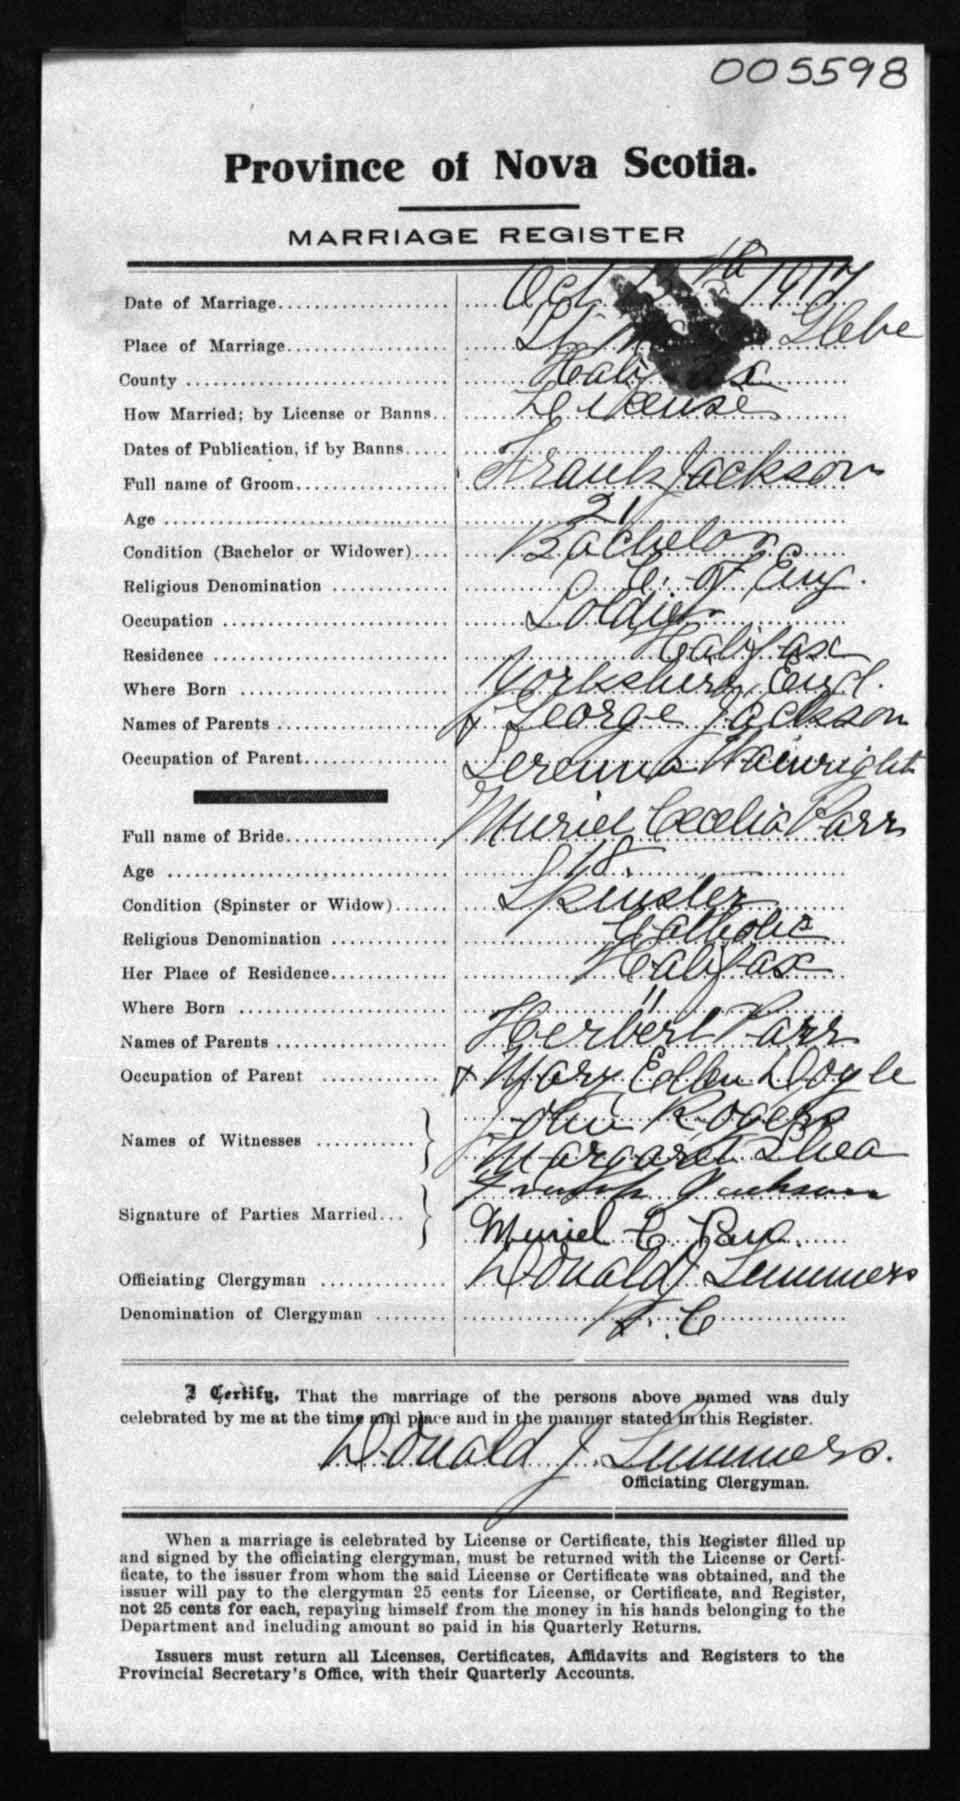 005598
Province of Nova Scotia.
MARRIAGE REGISTER
Date of Marriage Oct th 1917
Place of Marriage St Glebe
County Halifax
How Married; by License or Banns License
Dates of Publication, if by Banns
Full name of Groom Frank Jackson
Age 21
Condition (Bachelor or Widower) Bachelor
Religious Denomination C. of Eng.
Occupation Soldier
Residence Halifax
Where Born Yorkshire, Engl.
Names of Parents George Jackson
Occupation of Parent Wainwright
Full name of Bride Muriel Cecelia Parr
Age 18.
Condition (Spinster or Widow) Spinster
Religious Denomination Catholic
Her Place of Residence Halifax
Where Born "
Names of Parents Herbert Parr
Occupation of Parent + Mary Ellen Doyle
Names of Witnesses John Rogers
Margaret Shea
Signature of Parties Married Frank Jackson
Muriel C Parr.
Officiating Clergyman Donald J Summers
Denomination of Clergyman R. C
I Certify, That the marriage of the persons above named was duly
celebrated by me at the time and place and in the manner stated in this Register.
Donald J. Summers.
Officiating Clergyman.
When a marriage is celebrated by License or Certificate, this Register filled up
and signed by the officiating clergyman, must be returned with the License or Certi-
ficate, to the issuer from whom the said License or Certificate was obtained, and the
issuer will pay to the clergyman 25 cents for License, or Certificate, and Register,
not 25 cents for each, repaying himself from the money in his hands belonging to the
Department and including amount so paid in his Quarterly Returns.
Issuers must return all Licenses, Certificates, Affidavits and Registers to the
Provincial Secretary's Office, with their Quarterly Accounts.